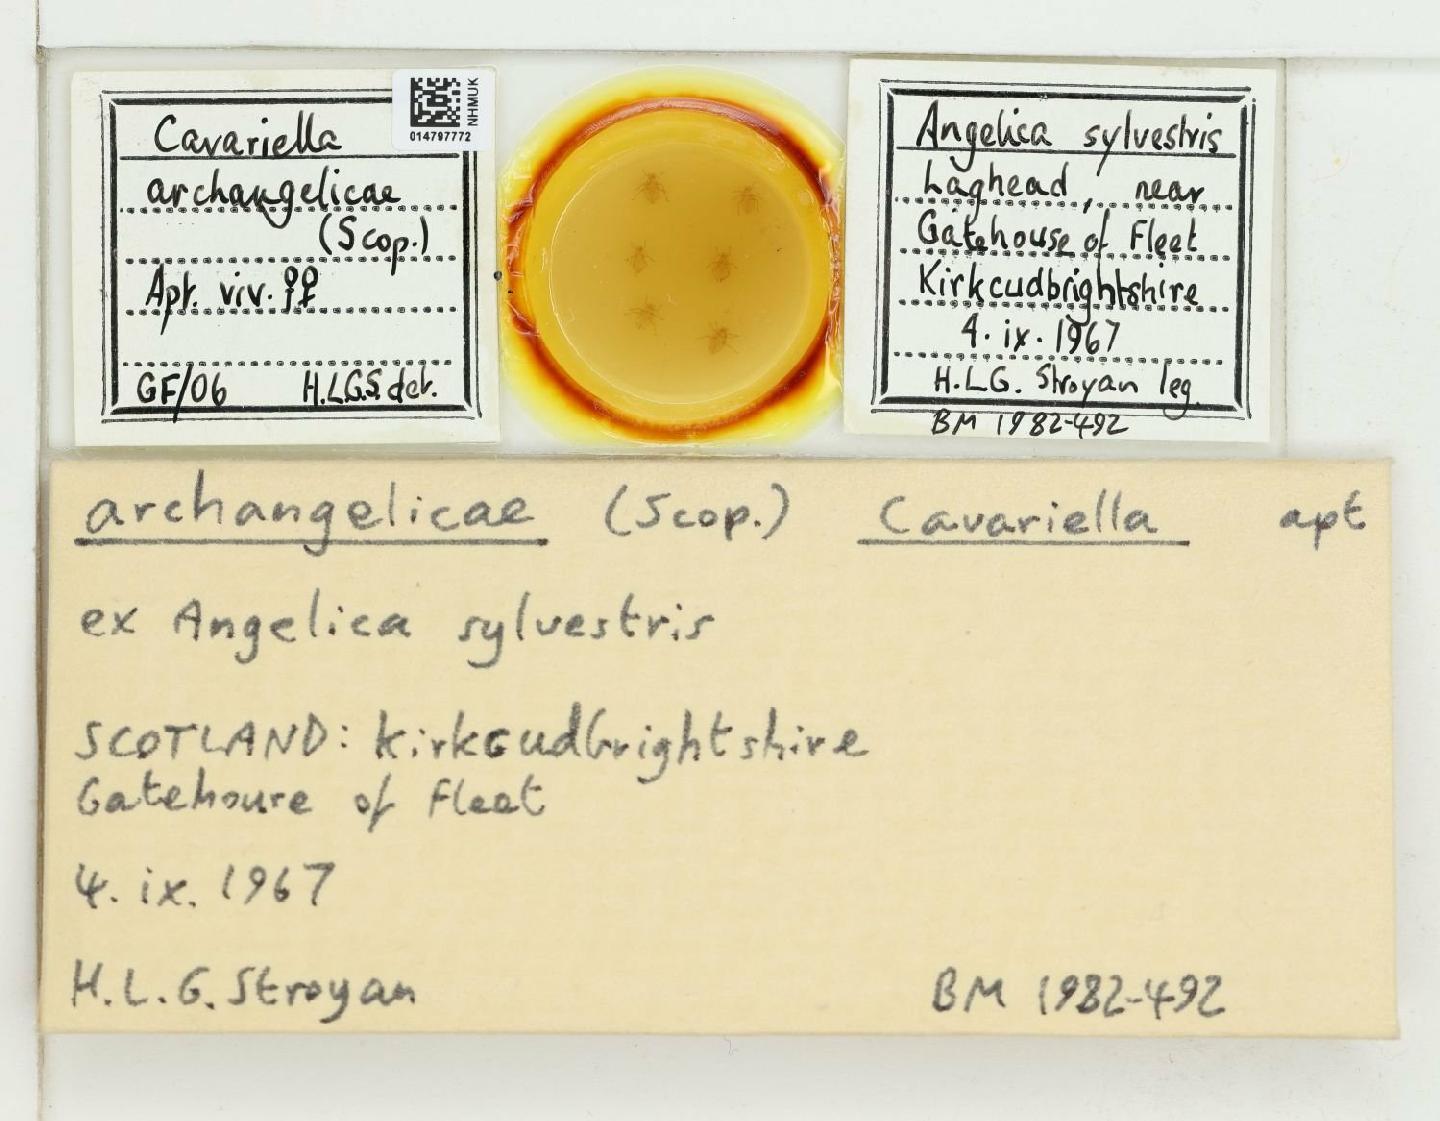 Cavariella
archangelicae
(Scop.)
Apt. viv. ♀♀
GF/06 H.L.G.S. det.
NHMUK
014797772
Angelica sylvestris
Laghead, near
Gatehouse of Fleet
Kirkcudbrightshire
4. ix. 1967
H.L.G. Stroyan leg.
BM 1982-492
archangelicae (Scop.) Cavariella apt
ex Angelica sylvestris
SCOTLAND: Kirkcudbrightshire
Gatehouse of Fleet
4. ix. 1967
H.L.G. Stroyan BM 1982-492